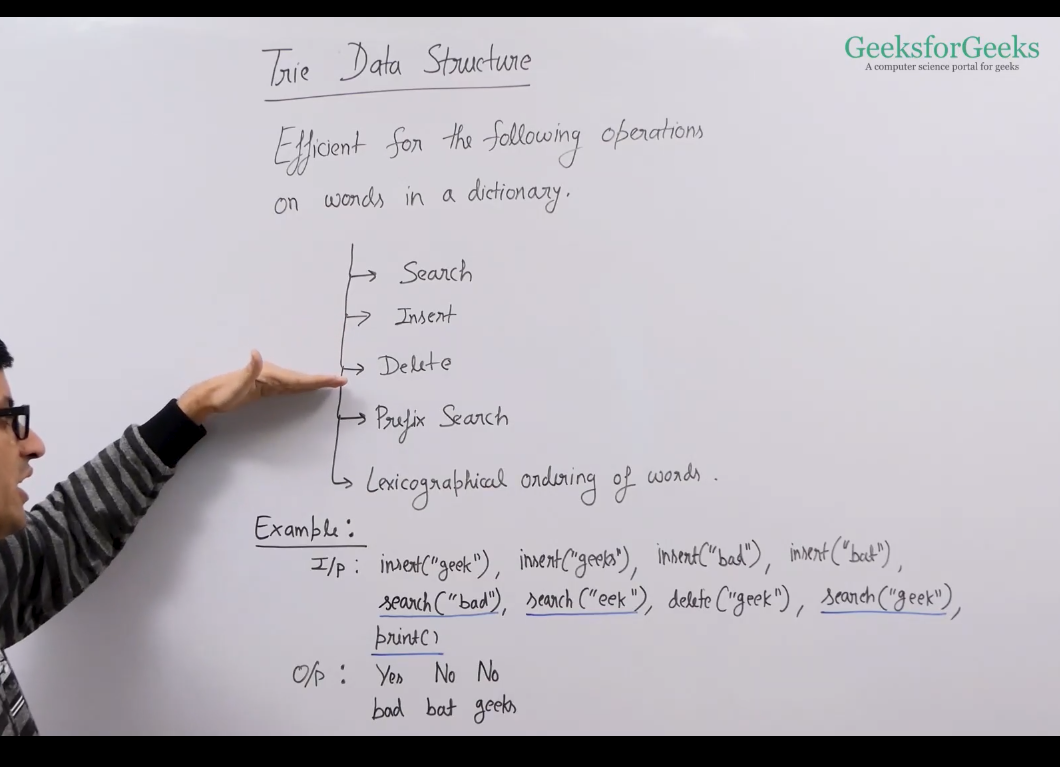 GeeksforGeeks
A computer science portal for geeks
Trie Data Structure
Efficient for the following operations
on words in a dictionary.
Search
Insert
Delete
Prefix Search
Lexicographical ordering of words.
Example:
I/p: insert("geek"), insert("geeks"), insert("bad"), insert("bat"),
search("bad"), search("eek"), delete("geek"), search("geek"),
print()
O/p: Yes No No
bad bat geeks